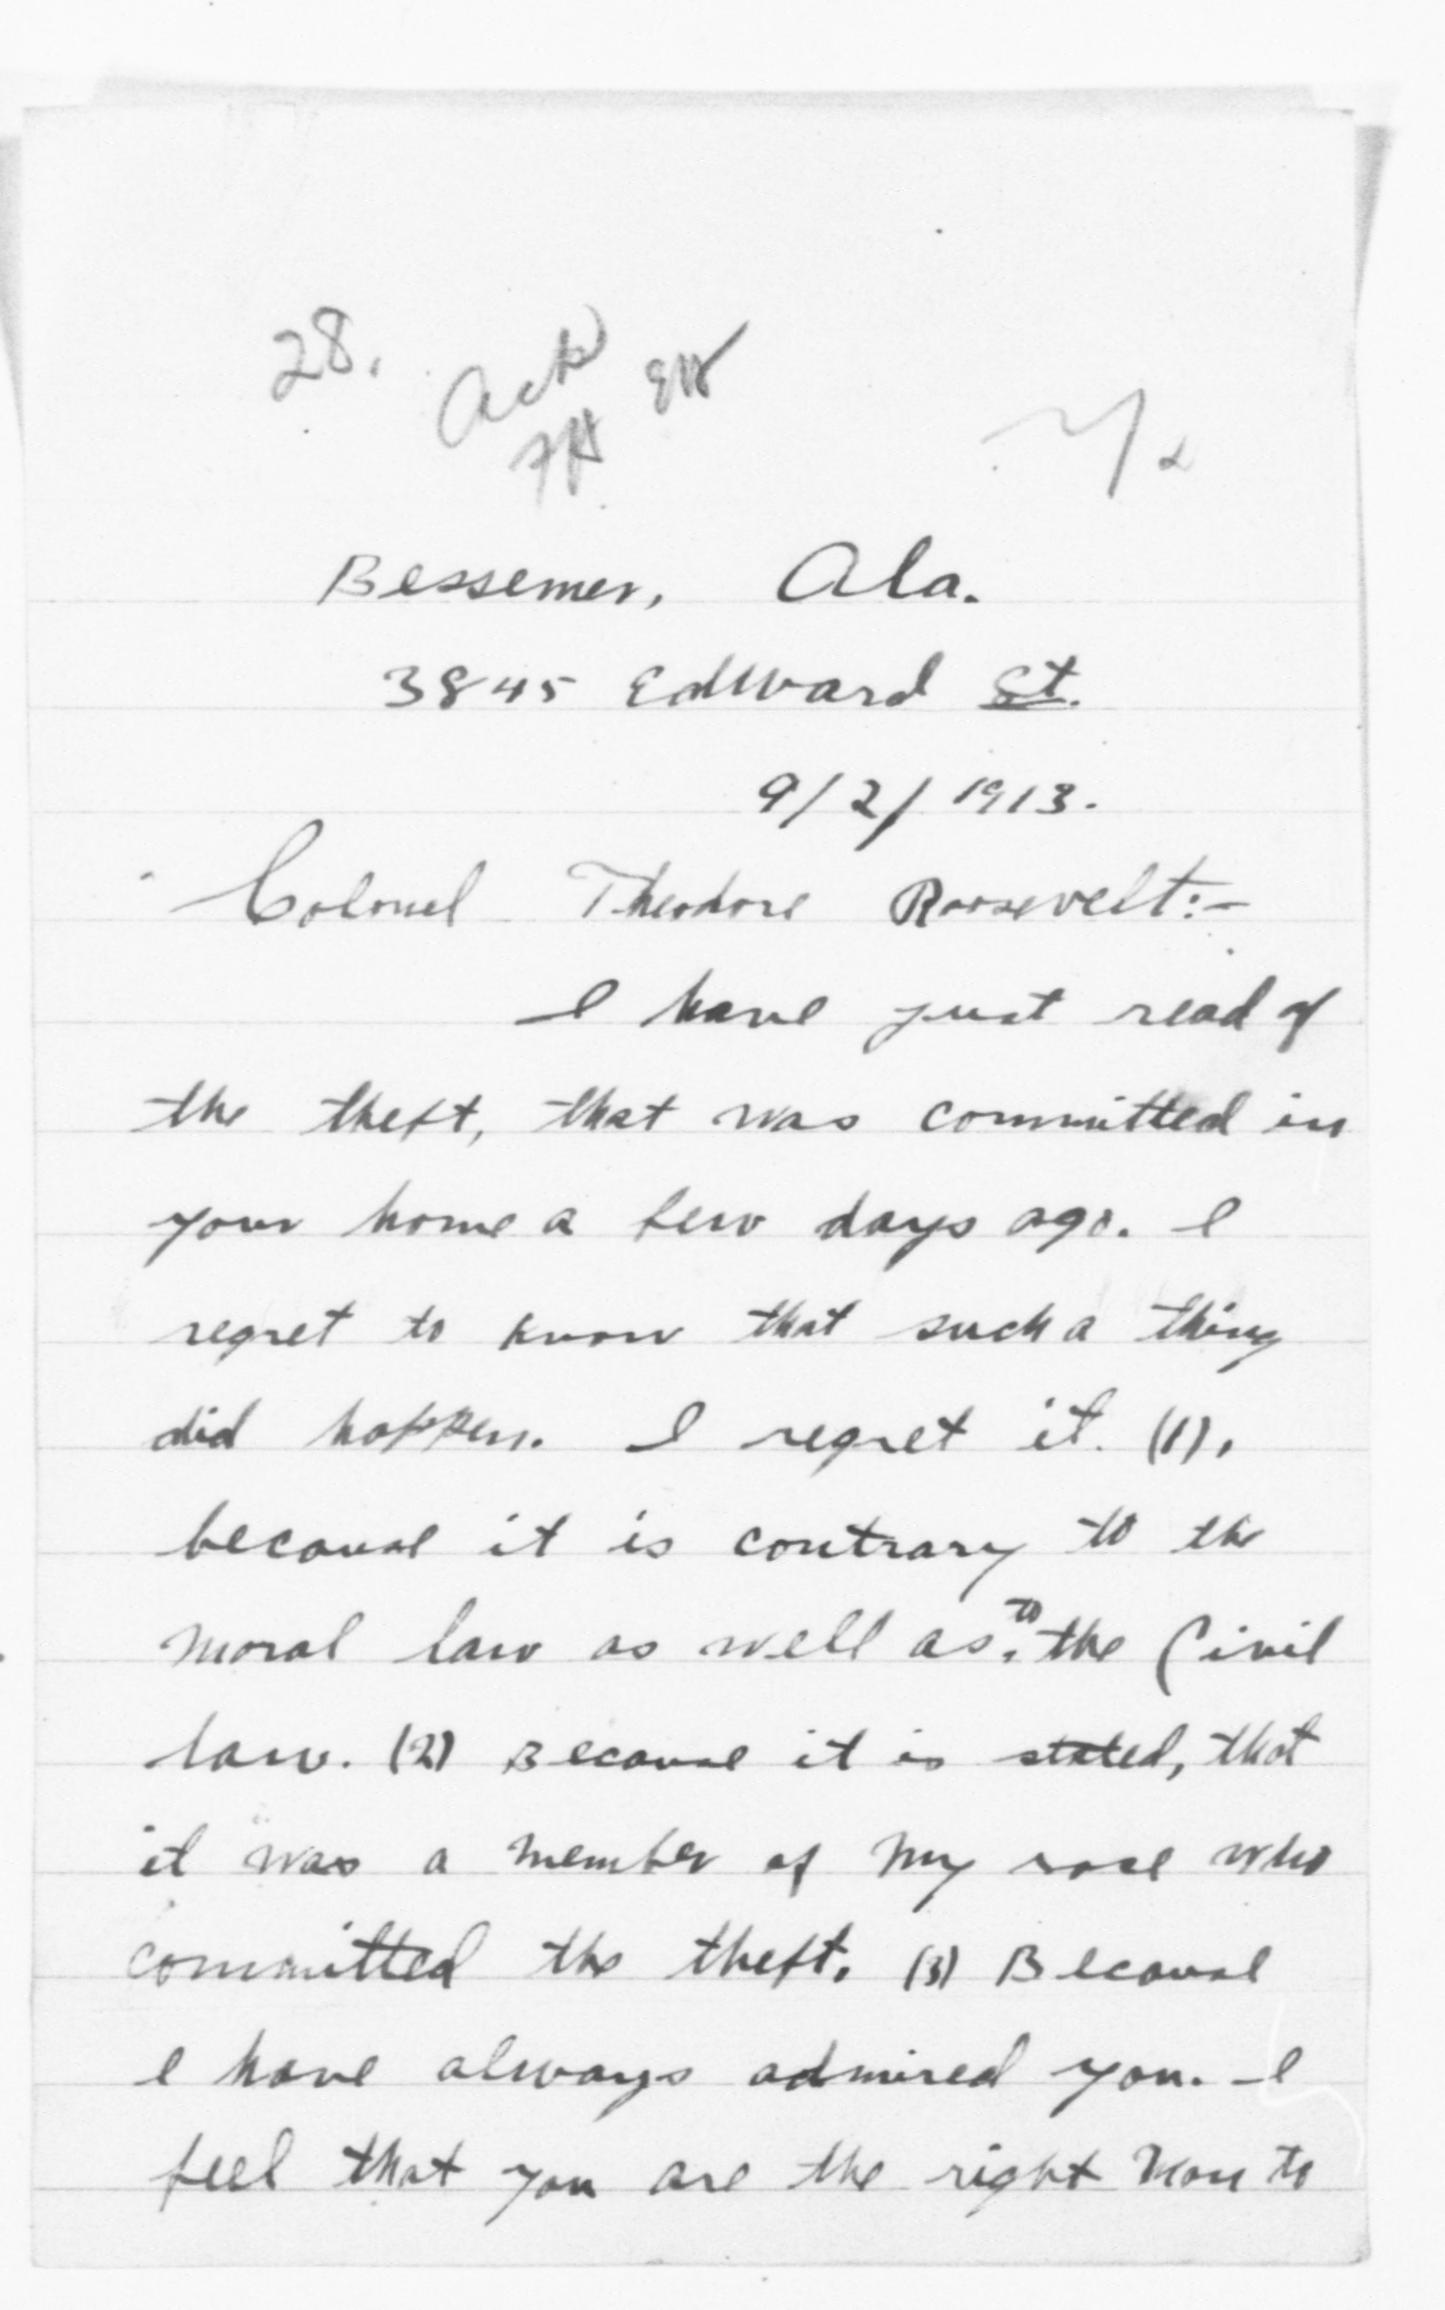 28.
Ack
Bessemer, Ala.
3845 Edward St.
9/2/1913.
Colonel Theodore Roosevelt:-
I have just read of
the theft, that was committed in
your home a few days ago. I
regret to know that such a thing
did happen. I regret it. (1),
because it is contrary to the
moral law as well as, to the Civil
law. (2) Because it is stated, that
it was a member of my race who
committed the theft. (3) Because
I have always admired you. I
feel that you are the right man to